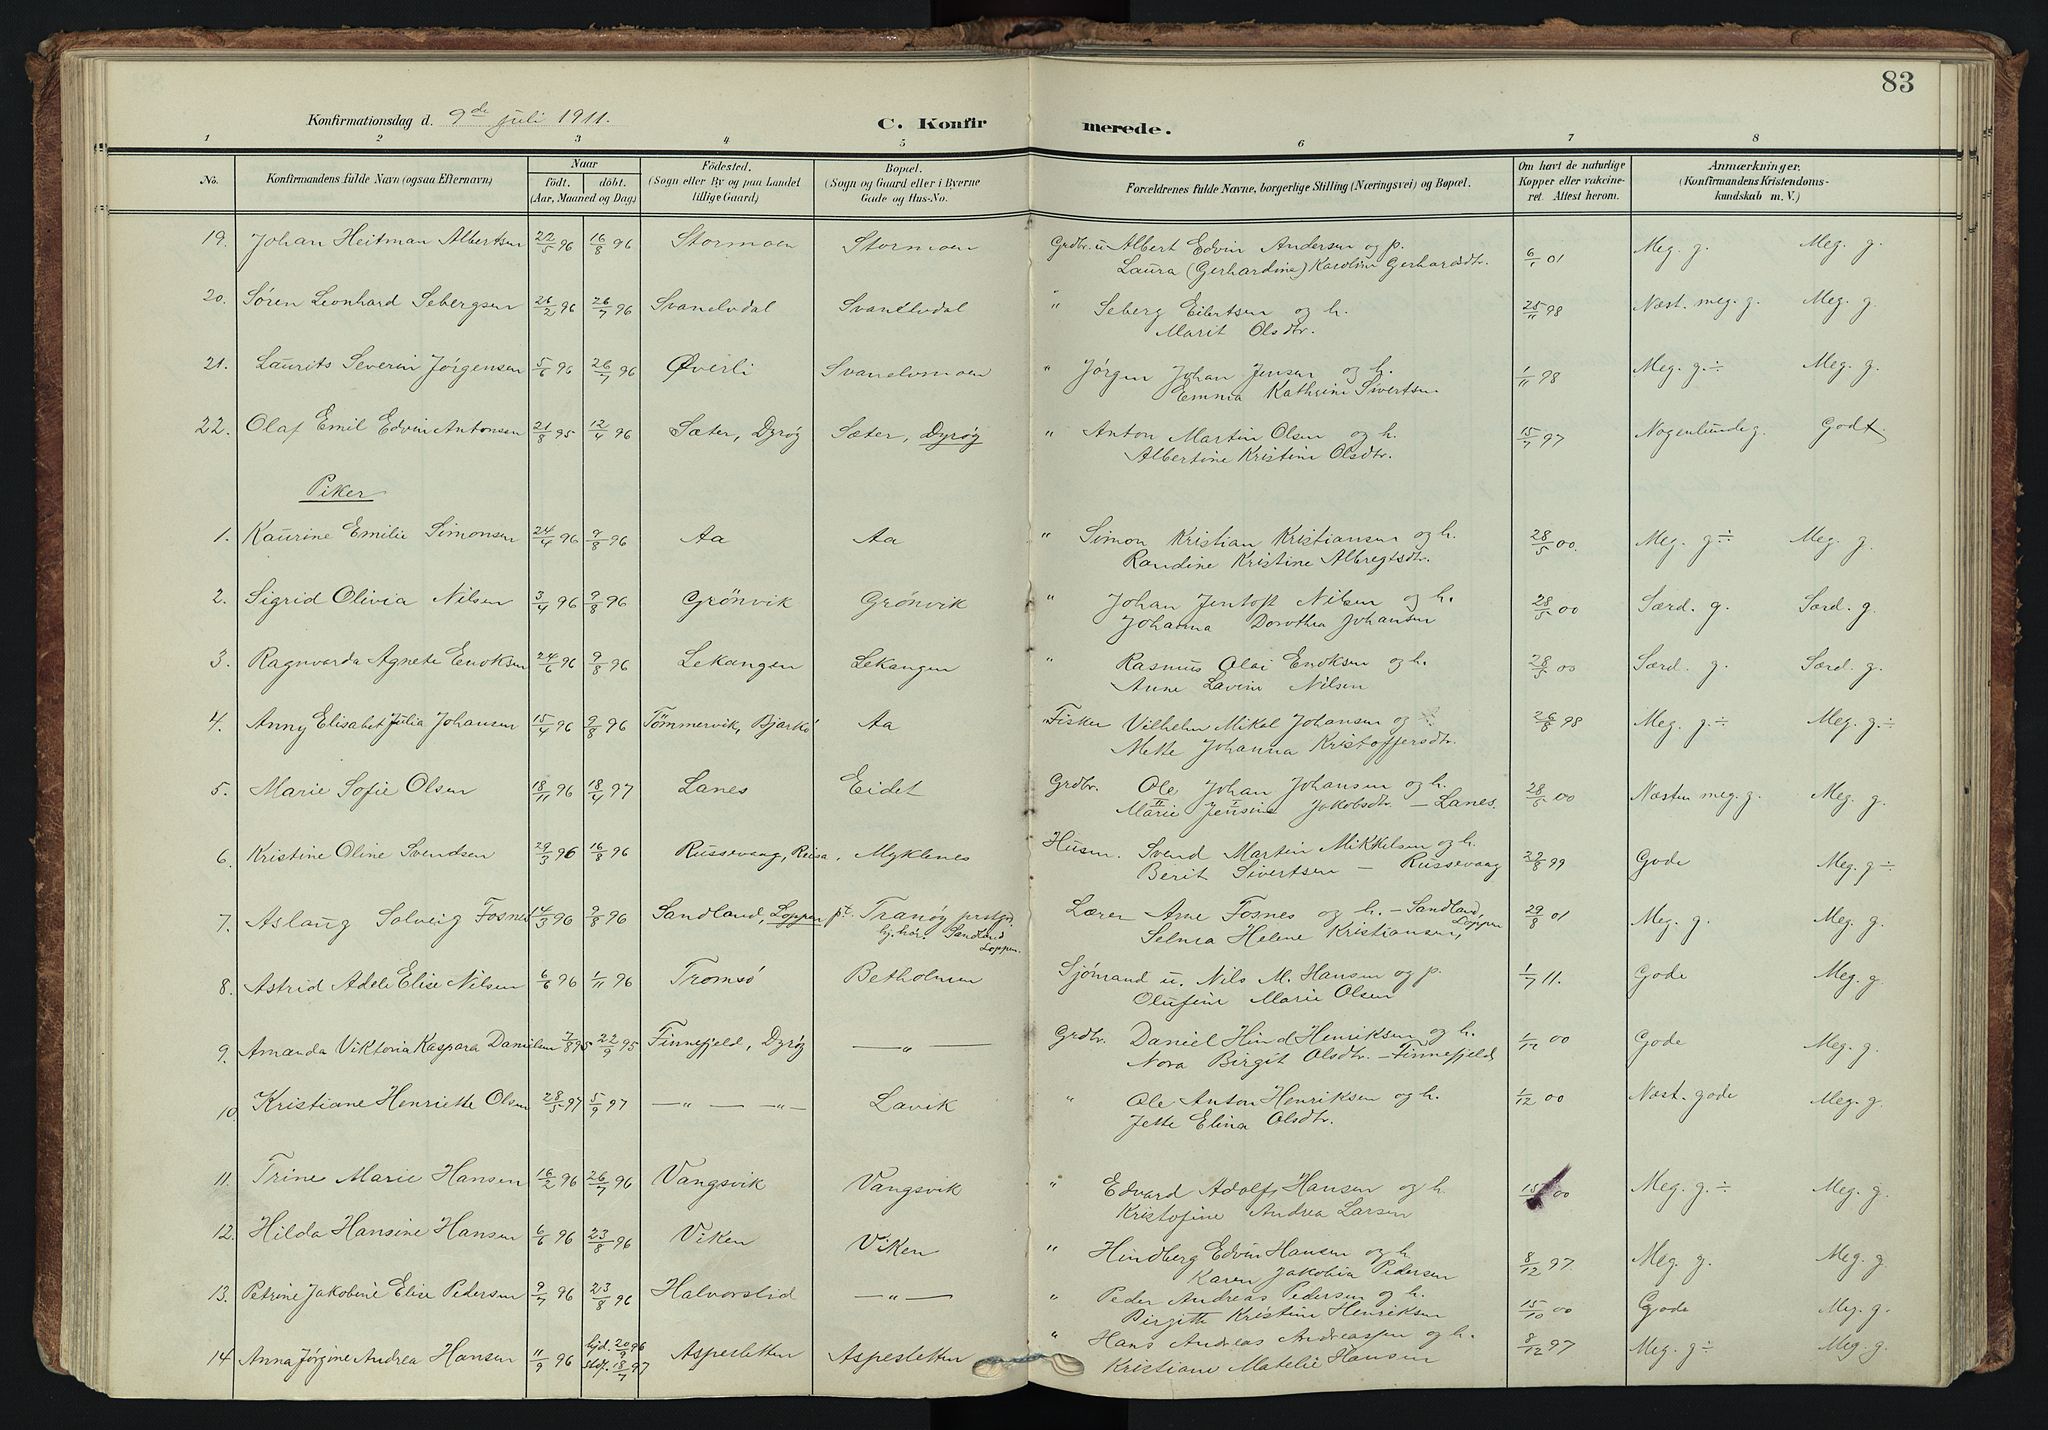 83
Konfirmationsdag d. 9de juli 1911. C. Konfirmerede.
1 2 3 4 5 6 7 8
No. Konfirmandens fulde Navn (ogsaa Efternavn) Naar født. døbt. (Aar, Maaned og Dag) Födested. (Sogn eller By og paa Landet tillige Gaard) Bopæl. (Sogn og Gaard eller i Byerne Gade og Hus-No. Forældrenes fulde Navne, borgerlige Stilling (Næringsvei) og Bopæl. Om havt de naturlige Kopper eller vakcineret. Attest herom. Anmærkninger. (Konfirmandens Kristendomskundskab m. V.)
19. Johan Heitman Albertsen 22/5 96 16/8 96 Stormoen Stormoen Grdbr. u. Albert Edvin Andersen og p. 6/1 01 Meg. g. Meg. g.
Laura (Gerhardine) Karoline Gerhardsdtr.
20. Søren Leonhard Sebergsen 26/2 96 26/7 96 Svanelvdal Svanelvdal " Seberg Eilertsen og h. 25/11 98 Næst. meg. g. Meg. g.
Marit Olsdtr.
21. Laurits Severin Jørgensen 5/6 96 26/7 96 Øverli Svanelvmoen " Jørgen Johan Jensen og h. 1/11 98 Meg. g. ÷ Meg. g.
Emma Kathrine Sivertsen
22. Olaf Emil Edvin Antonsen 21/8 95 12/4 96 Sæter, Dyrøy Sæter, Dyrøy " Anton Martin Olsen og h. 15/7 97 Nogenlunde g. Godt
Albertine Kristine Olsdtr.
Piker
1. Kaurine Emilie Simonsen 24/4 96 9/8 96 Aa Aa " Simon Kristian Kristiansen og h. 28/5 00. Meg. g ÷ Meg. g.
Randine Kristine Albregtsdtr.
2. Sigrid Olivia Nilsen 3/4 96 9/8 96 Grönvik Grönvik " Johan Jentoft Nilsen og h. 28/5 00 Særd. g. Særd. g.
Johanna Dorothea Johansen
3. Ragnvarda Agnete Enoksen 24/6 96 9/8 96 Lekangen Lekangen " Rasmus Olai Enoksen og h. 28/5 00 Særd. g. Særd. g.
Anne Lavine Nilsen
4. Anny Elisabet Julia Johansen 15/4 96 9/8 96 Tömmervik, Bjarkö Aa Fisker Vilhelm Mikal Johansen og 26/8 98 Meg. g. ÷ Meg. g. ÷
Mette Johanna Kristoffersdtr.
5. Marie Sofie Olsen 18/11 96 18/4 97 Lanes Eidet Grdbr. Ole Johan Johansen og h. 28/5 00 Næsten meg. g. Meg. g.
Marie II Jensine I Jakobsdtr. — Lanes.
6. Kristine Oline Svendsen 29/3 96 16/8 96 Russevaag, Reisa. Myklenes Husm. Svend Martin Mikkelsen og h. 22/8 99 Gode Meg. g ÷
Berit Sivertsen — Russevaag
7. Aslaug Solveig Fosnes 14/3 96 9/8 96 Sandland, Loppen pt. Tranöy prstgd. Lærer Arne Fosnes og h. — Sandland, Loppen 29/8 01 Meg. g. Meg. g.
hj.hør. Sandland Loppen. Selma Helene Kristiansen,
8. Astrid Adele Elise Nilsen 6/6 96 1/11 96 Tromsö Betholmen Sjömand u. Nils M. Hansen og p. 1/7 11. Gode Meg. g.
Olufine Marie Olsen
9. Amanda Viktoria Kaspara Danielsen 7/8 95 22/9 95 Finnefjeld, Dyröy — " — Grdbr. Daniel Hind Henriksen og h. 1/12 00 Gode Meg. g.
Nora Birgit Olsdtr. — Finnefjeld
10. Kristiane Henriette Olsen 28/5 97 5/9 97 — " — — " — Lavik " Ole Anton Henriksen og h. 1/12 00 Næst. gode Meg. g.
Jette Elina Olsdtr.
11. Trine Marie Hansen 16/2 96 26/7 96 Vangsvik Vangsvik " Edvard Adolf Hansen og h. 15/ 00 Meg. g. ÷ Meg. g.
Kristofine Andrea Larsen
12. Hilda Hansine Hansen 6/6 96 23/8 96 Viken Viken " Hindberg Edvin Hansen og h. 8/12 97. Meg. g. Meg. g.
Karen Jakobia Pedersen
13. Petrine Jakobine Elise Pedersen 9/7 96 23/8 96 Halvorslid — " — " Peder Andreas Pedersen og h. 15/10 00 Gode Meg. g.
Birgitte Kristine Henriksen
14. Anna Jörgine Andrea Hansen 11/9 96 hjd. 20/9 96 Aspesletten Aspesletten " Hans Andreas Andreassen og h. 8/12 97 Meg. g ÷ Meg. g.
stdf. 18/7 97 Kristiane Matelie Hansen